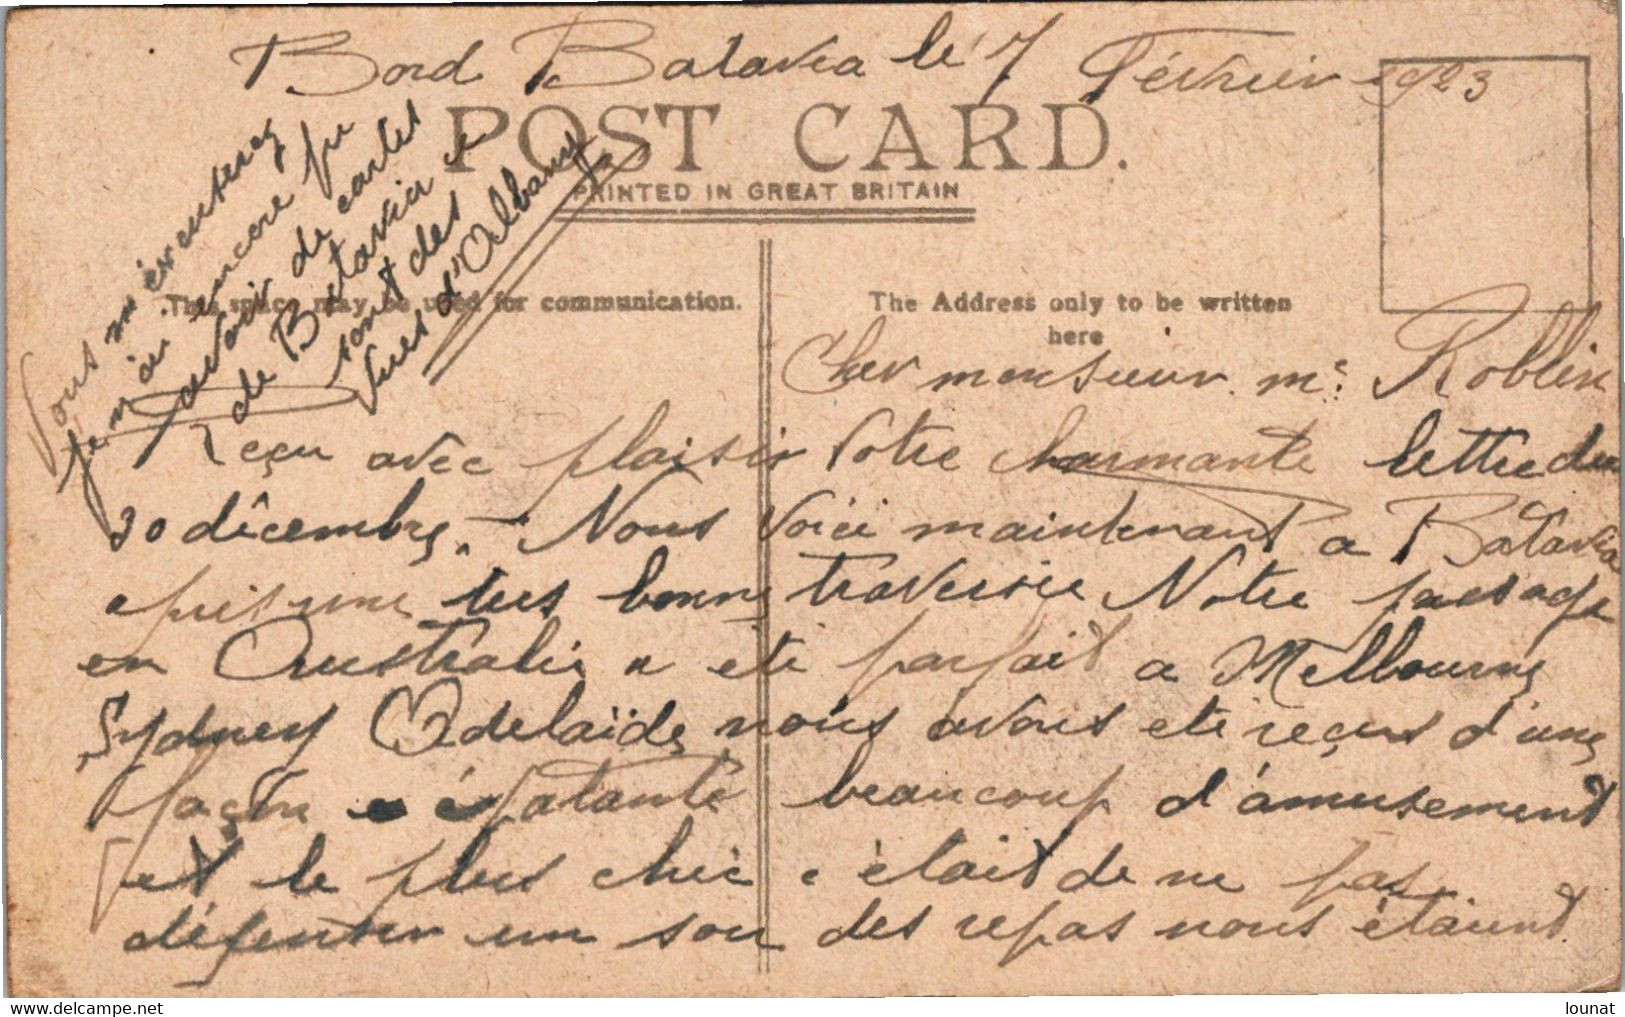 Bord Batavia le 7 Février 1923
POST CARD.
PRINTED IN GREAT BRITAIN
This space may be used for communication.
The Address only to be written
here
Vous m'éxcuserez
je n'ai encore pu
avoir de cartes
de Batavia e
sont des
vues d'Albany
Cher monsieur me Roblin
Reçu avec plaisir votre charmante lettre du
30 décembre. - Nous voici maintenant a Batavia
apris une tres bonne traversée Notre passage
en Australie a eté parfait a Melbourne
Sydney Adelaïde, nous avons eté reçus d'une
façon épatante beaucoup d'amusement
et le plus chic c'était de ne pas
dépenser un sou des repas nous étaient
lounat